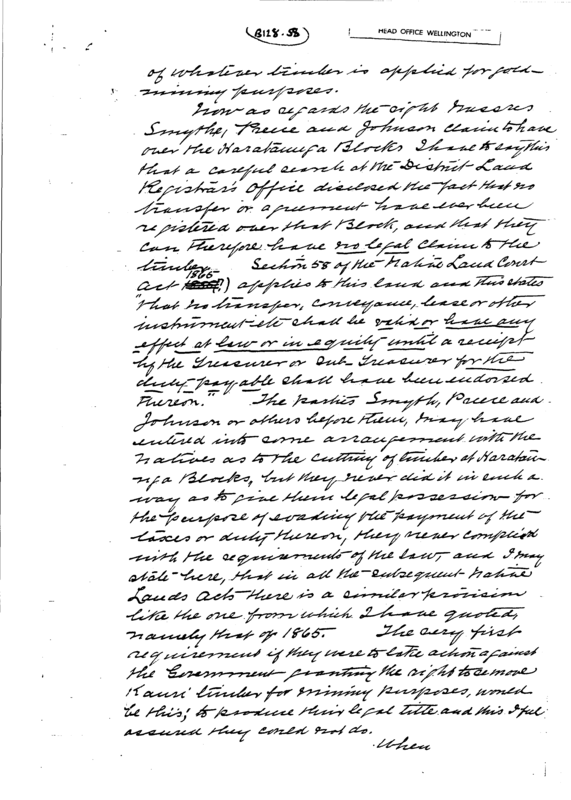 B128.58
HEAD OFFICE WELLINGTON
of whatever timber is applied for gold-
mining purposes.
Now as regards the right Messrs
Smythe, and Johnson claim to have
over the Harataunga Blocks I have to say this
that a careful search at the District Land
Registrar's Office disclosed the fact that no
transfer or agreement have ever been
registered over that Block, and that they
can therefore have no legal claim to the
timber. Section 58 of the Native Land Court
act 1865 applies to this land and thus states
"that no transfer, conveyance, lease or other
instrument etc shall be valid or have any
effect at law or in equity until a receipt
by the Treasurer or Sub-Treasurer for the
duty payable shall have been endorsed
thereon." The parties Smyth, and
Johnson or others before them, may have
entered into some arrangement with the
natives as to the cutting of timber at Haratau-
nga Blocks, but they never did it in such a
way as to give them legal possession for
the purpose of evading the payment of the
taxes or duty thereon, they never complied
with the requirements of the law, and I may
state here, that in all the subsequent Native
Lands acts there is a similar provision
like the one from which I have quoted,
namely that of 1865. The very first
requirement if they were to take action against
the Government granting the right to remove
Kauri timber for mining purposes, would
be this; to produce their legal title and this I feel
assured they could not do.
When